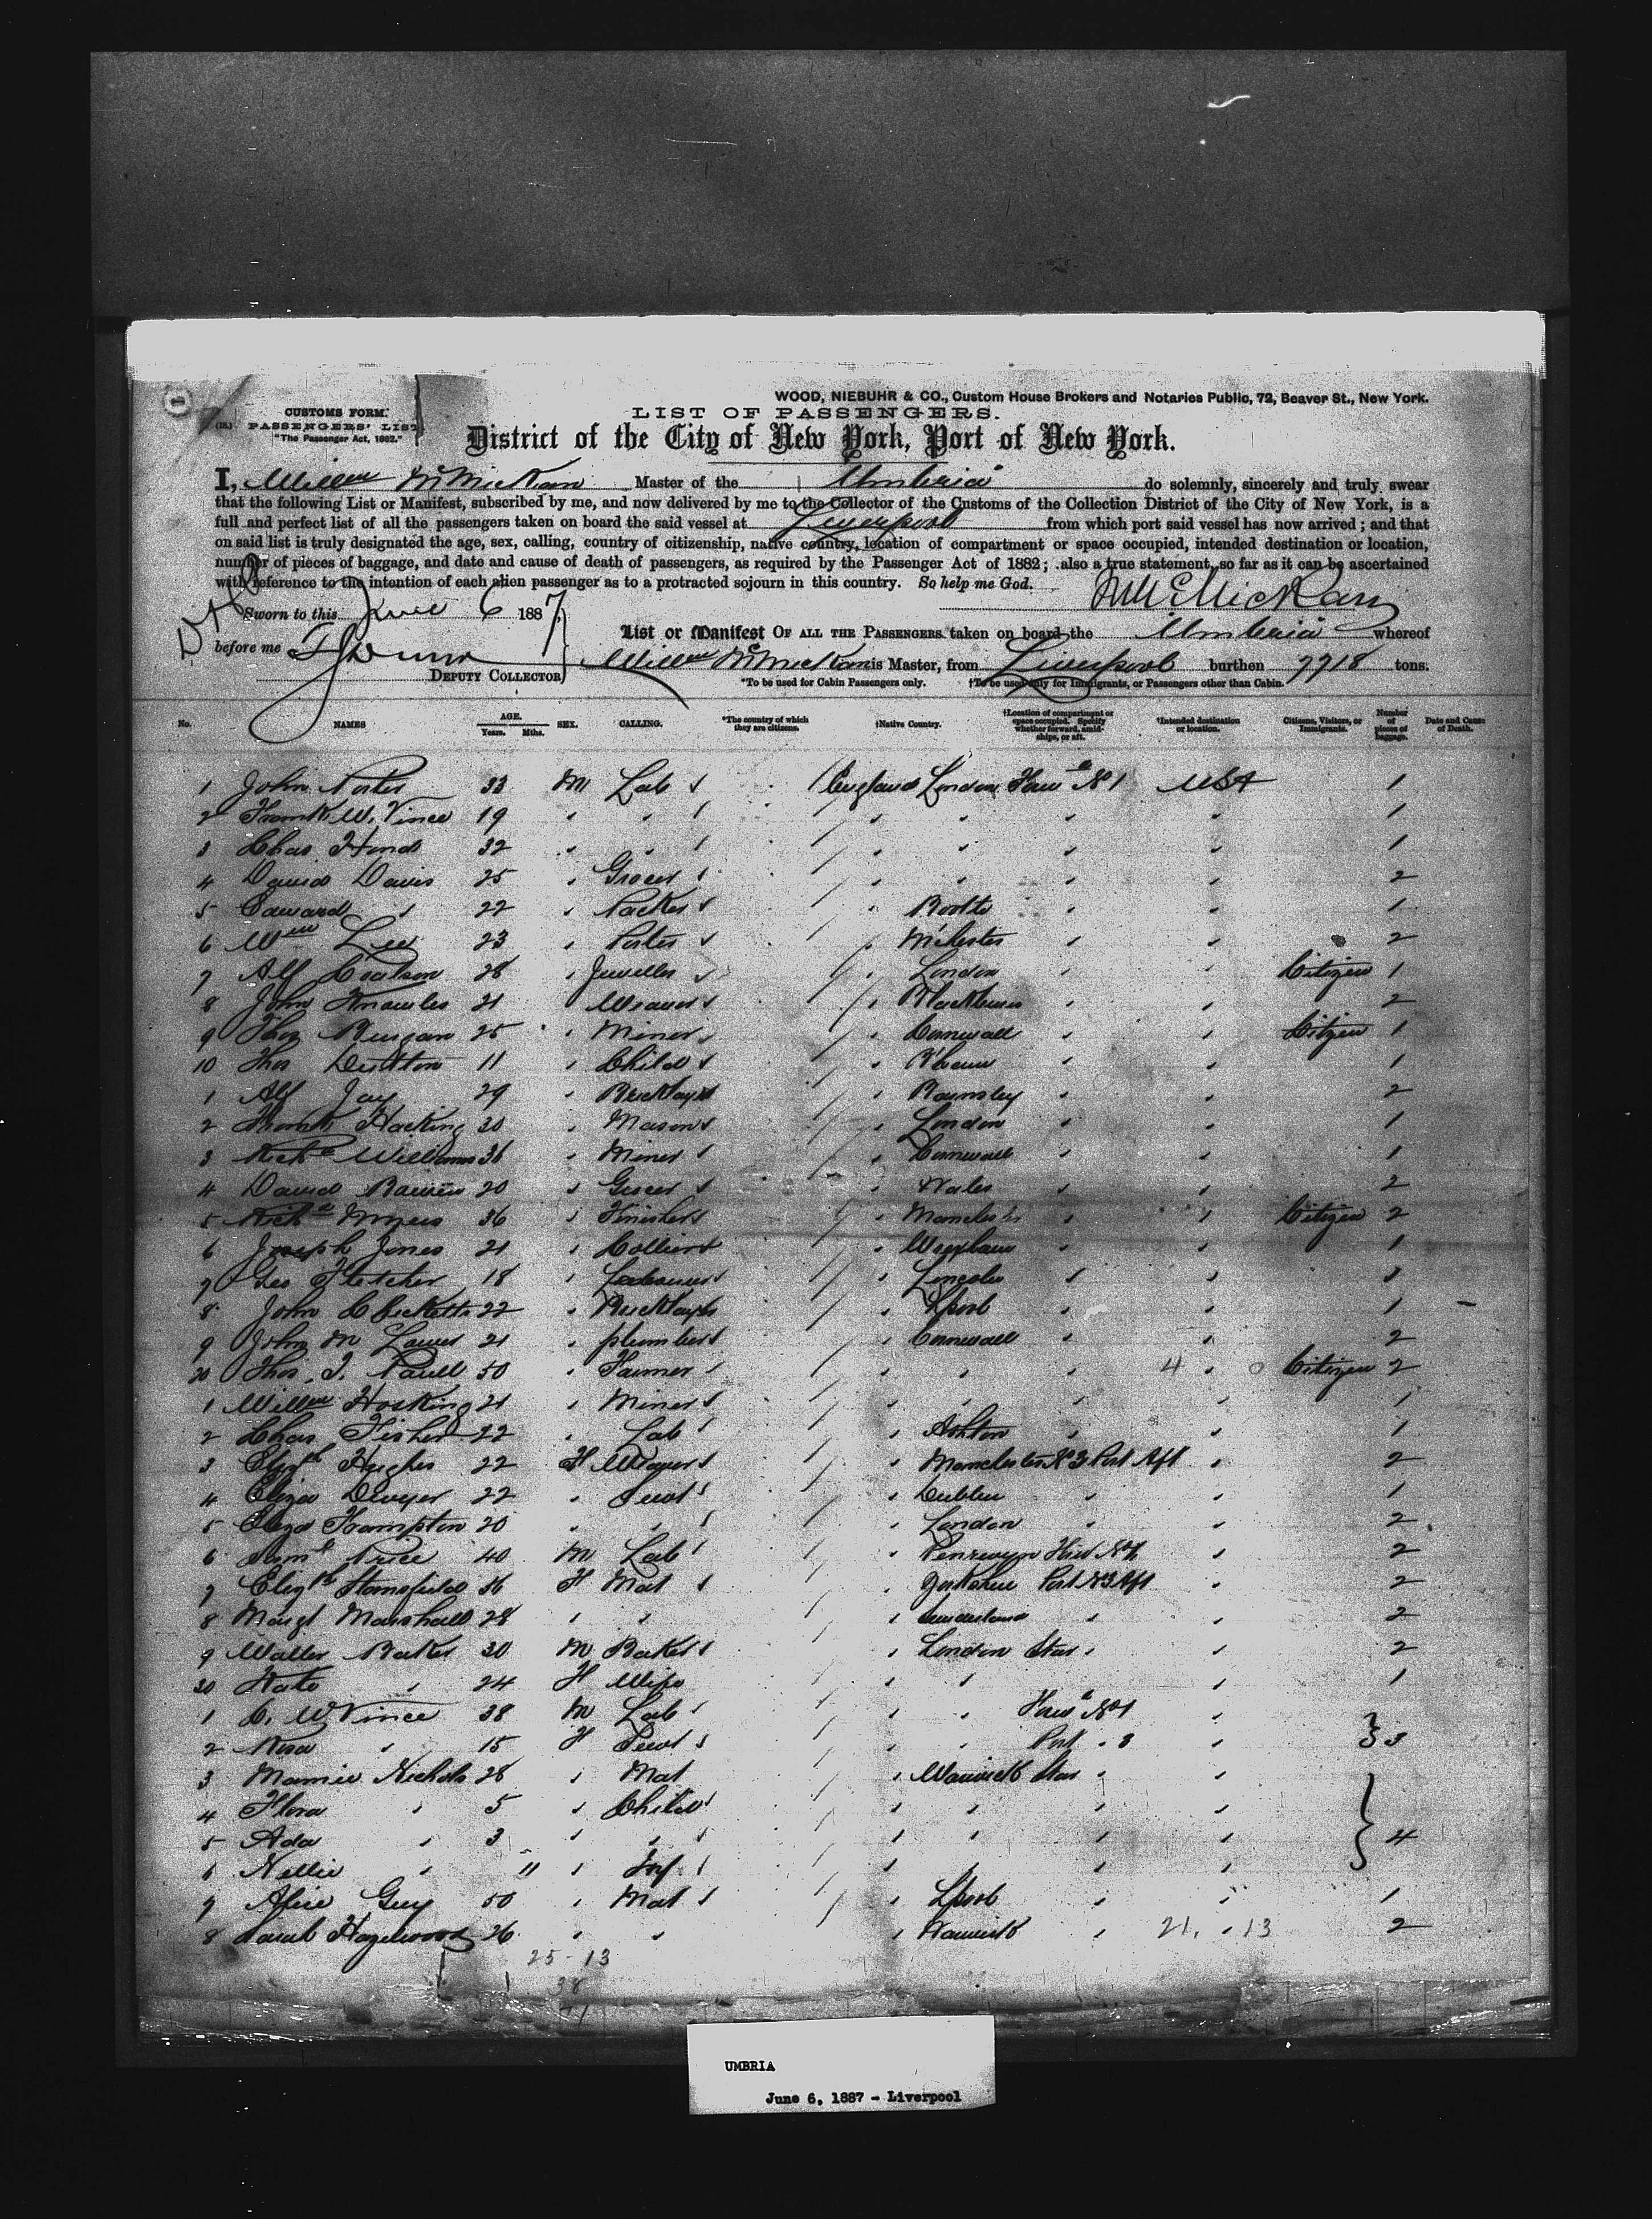 WOOD, NIEBUHR & CO., Custom House Brokers and Notaries Public, 72, Beaver St., New York.
CUSTOMS FORM.
LIST OF PASSENGERS.
PASSENGERS' LIST
"The Passenger Act, 1882."
District of the City of New York, Port of New York.
I, Willm McMickan Master of the Umbria do solemnly, sincerely and truly swear
that the following List or Manifest, subscribed by me, and now delivered by me to the Collector of the Customs of the Collection District of the City of New York, is a
full and perfect list of all the passengers taken on board the said vessel at Liverpool from which port said vessel has now arrived; and that
on said list is truly designated the age, sex, calling, country of citizenship, native country, location of compartment or space occupied, intended destination or location,
number of pieces of baggage, and date and cause of death of passengers, as required by the Passenger Act of 1882; also a true statement, so far as it can be ascertained
with reference to the intention of each alien passenger as to a protracted sojourn in this country. So help me God.
Sworn to this June 6 1887
List or Manifest OF ALL THE PASSENGERS taken on board the Umbria whereof
before me
Willm McMickan is Master, from Liverpool burthen 7718 tons.
DEPUTY COLLECTOR
*To be used for Cabin Passengers only. †To be used only for Immigrants, or Passengers other than Cabin.
No. NAMES AGE. Years. Mths. SEX. CALLING. *The country of which they are citizens. †Native Country. †Location of compartment or space occupied. Specify whether forward, amidships, or aft. †Intended destination or location. Citizens, Visitors, or Immigrants. Number of pieces of baggage. Date and Cause of Death.
1 John Porter 33 M Lab England London Forwd No 1 USA 1
2 Frank W. Vince 19 " " " " " " 1
3 Chas Hind 32 " " " " " " 1
4 David Davis 25 " Grocer " " " " 2
5 Edward " 22 " Packer " Bootle " " 1
6 Wm Lee 23 " Porter " M'chester " " 2
7 Alf Coulson 28 " Jeweller " London " Citizen 1
8 John Knowles 21 Weaver " Blackburn " " 2
9 Thos 25 " Miner " Cornwall " " Citizen 1
10 Thos Dutton 11 " Child " B'ham " " 1
1 Alf Jay 29 " Bricklayer " Barnsley " " 2
2 Frank Hacking 30 " Mason " London " " 1
3 Richd Williams 36 " Miner " Cornwall " " 1
4 David 20 " Grocer " Wales " " 2
5 Richd Myers 36 " Finisher " Manchestr " " Citizen 2
6 Joseph Jones 21 " Collier " Wrexham " " 1
7 Geo Fletcher 18 " Labourer " Lincoln " "
8 John 22 " Bricklayer " Lpool " " 1
9 John M 21 " plumber " Cornwall " " 2
20 Thos. J. Paull 50 " Farmer " " " 4 " Citizen 2
1 Willm Hosking 21 " Miner " " " " 1
2 Chas Fisher 22 " Lab " Ashton " " 1
3 Elizth Hughes 22 F Weaver " Manchester No 3 Port Aft " 2
4 Eliza Dwyer 22 " Servt " Dublin " " 1
5 Eliza Frampton 20 " " " London " " 2
6 Saml Price 40 M Lab " Forwd No 1 " 2
7 Elizth Stansfield 36 F Mat Yorkshire Port No 3 Aft " 2
8 Margt Marshall 28 " " " Sunderland " " 2
9 Walter Baker 30 M Baker " London Star " " 2
30 Kate " 24 F Wife " " " 1
1 C. W Vince 38 M Lab " " Forwd No 1 "
2 Rosa " 15 F Servt " " Port " 3 " 3
3 Mamie Nichols 28 " Mat " Warwick Star " "
4 Flora " 5 " Child " " " "
5 Ada " 3 " " " " " " 4
6 Nellie " 11 " Inf " " " "
7 Alice Guy 50 " Mat " Lpool " " 1
8 Sarah Hazelwood 26 " " " Warwick " 21. " 13 2
25 - 13
38
UMBRIA
June 6, 1887 - Liverpool